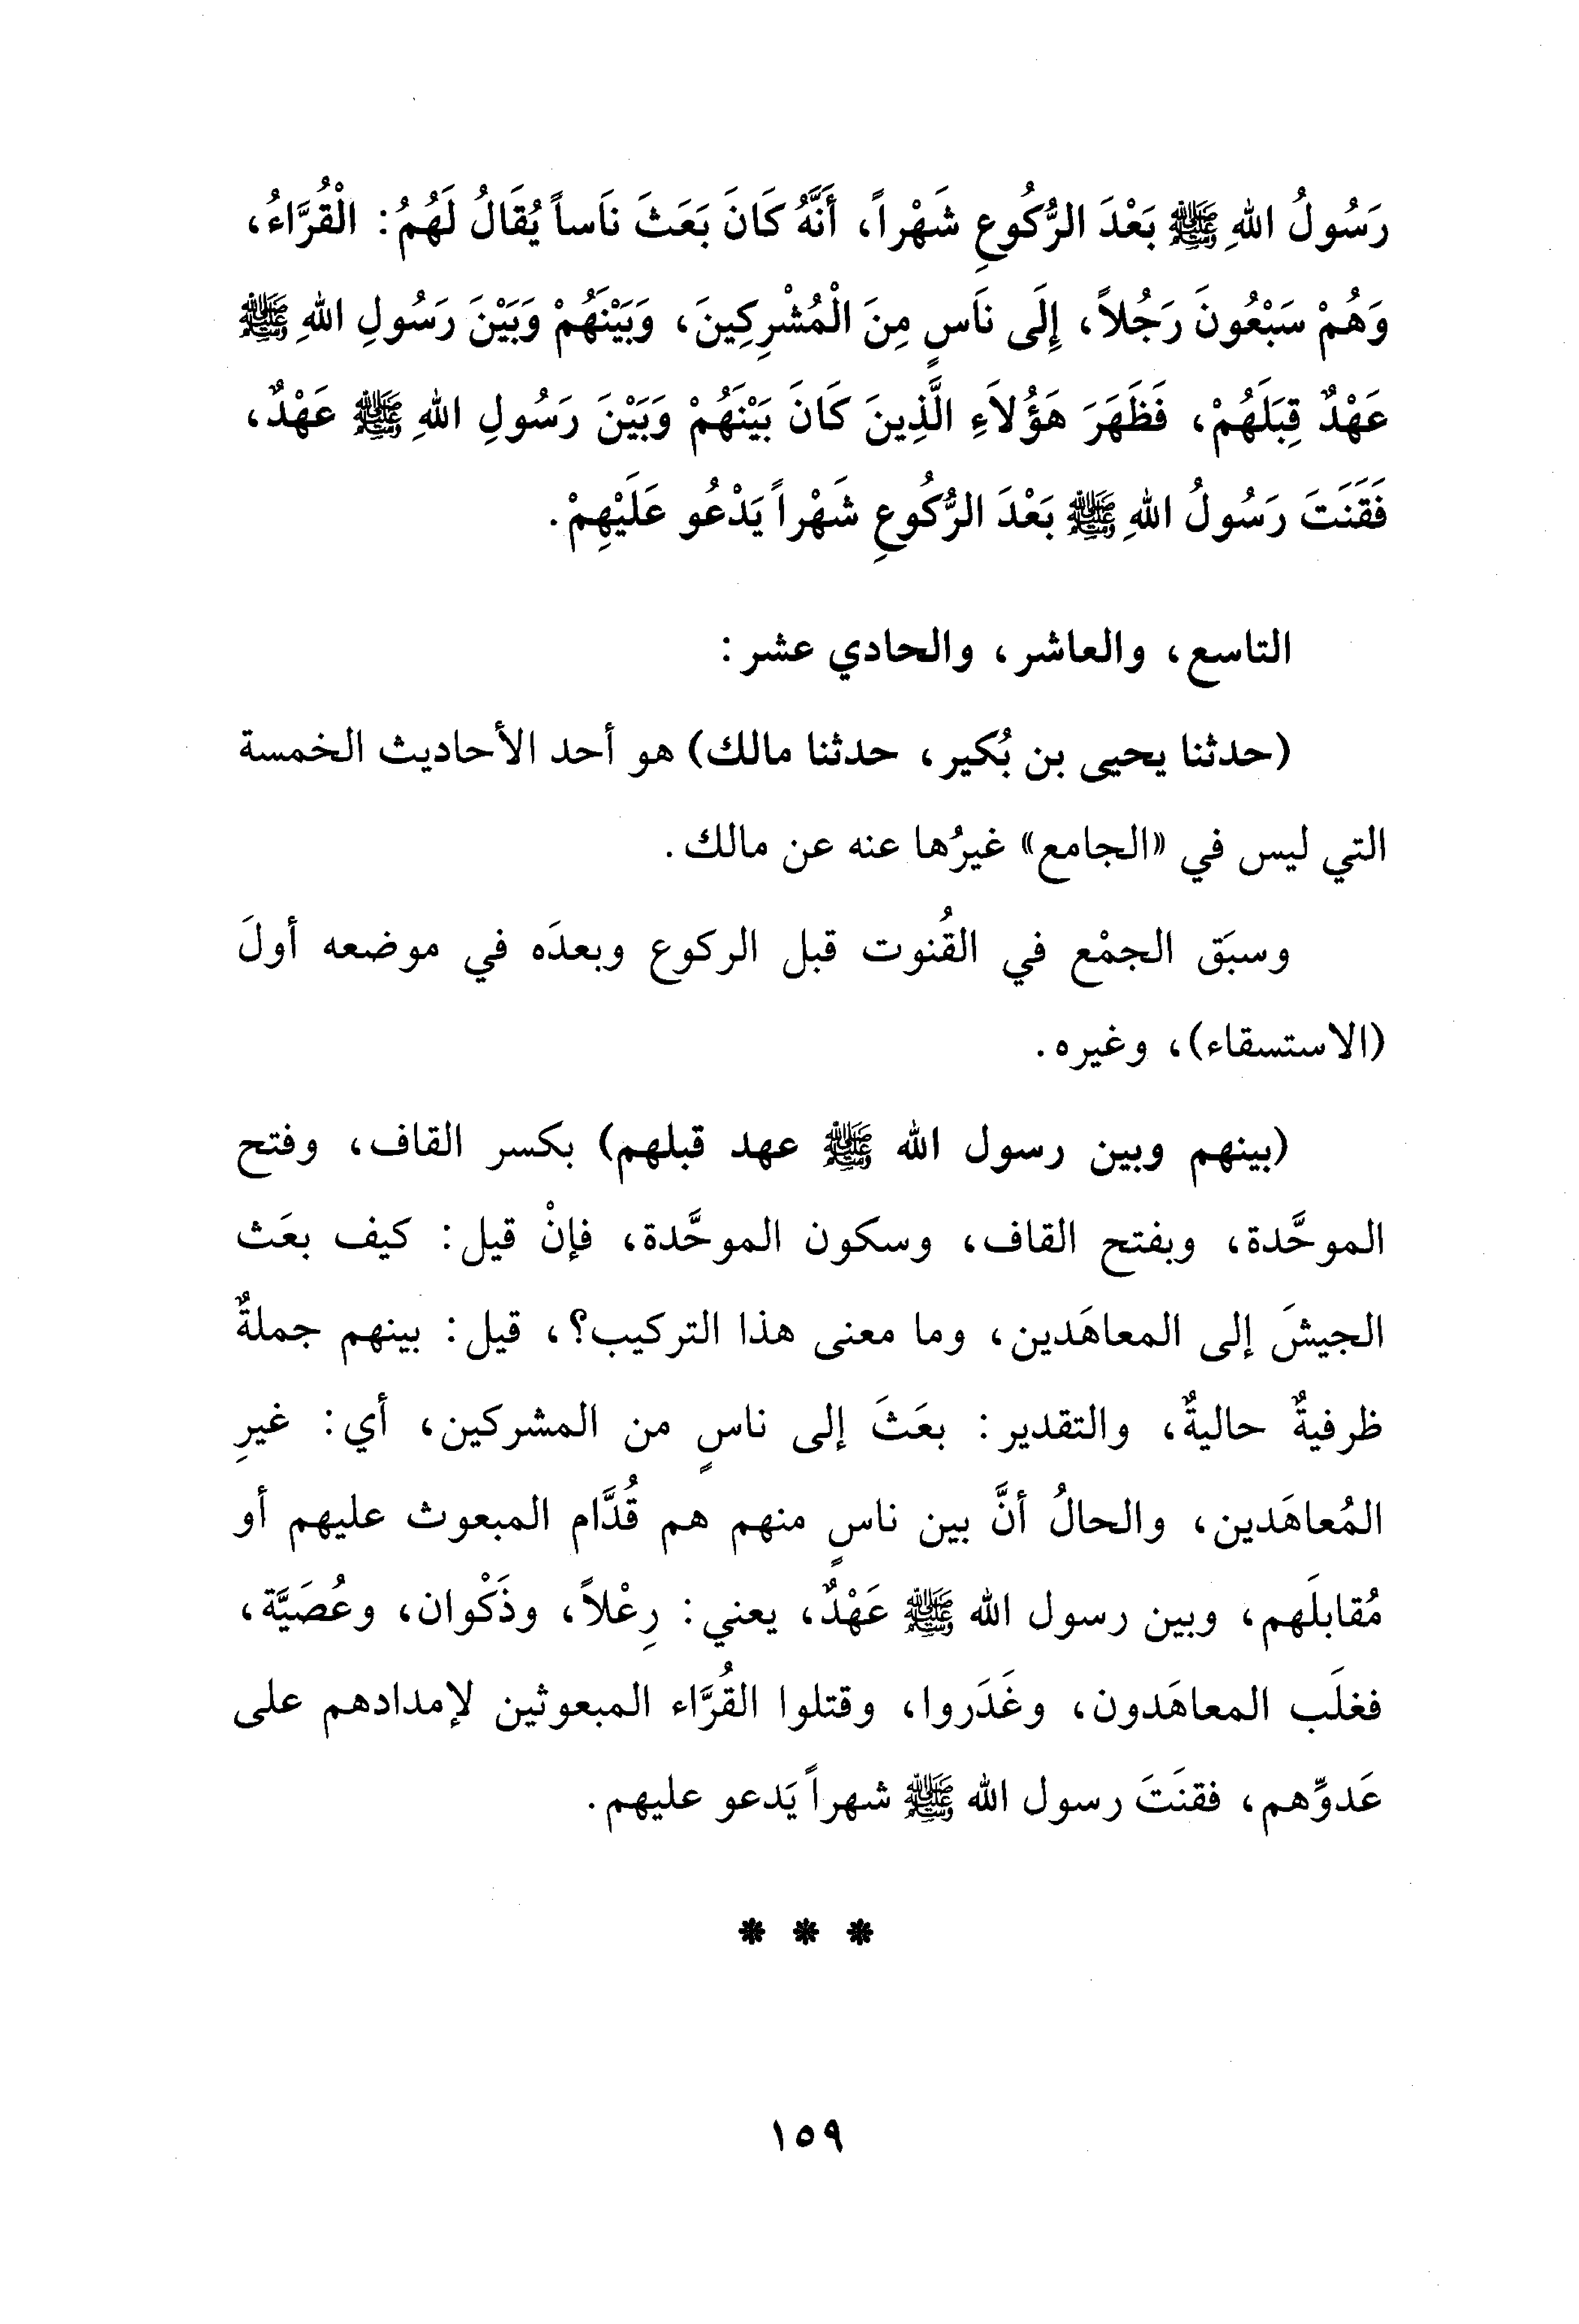 رَسُولُ اللهِ ﷺ بَعْدَ الرُّكُوعِ شَهْراً، أَنَّهُ كَانَ بَعَثَ نَاساً يُقَالُ لَهُمُ: الْقُرَّاءُ،
وَهُمْ سَبْعُونَ رَجُلاً، إِلَى نَاسٍ مِنَ الْمُشْرِكِينَ، وَبَيْنَهُمْ وَبَيْنَ رَسُولِ اللهِ ﷺ
عَهْدٌ قِبَلَهُمْ، فَظَهَرَ هَؤُلاَءِ الَّذِينَ كَانَ بَيْنَهُمْ وَبَيْنَ رَسُولِ اللهِ ﷺ عَهْدٌ،
فَقَنَتَ رَسُولُ اللهِ ﷺ بَعْدَ الرُّكُوعِ شَهْراً يَدْعُو عَلَيْهِمْ.
التاسع، والعاشر، والحادي عشر:
(حدثنا يحيى بن بُكير، حدثنا مالك) هو أحد الأحاديث الخمسة
التي ليس في «الجامع» غيرُها عنه عن مالك.
وسبَق الجمْع في القُنوت قبل الركوع وبعدَه في موضعه أولَ
(الاستسقاء)، وغيره.
(بينهم وبين رسول الله ﷺ عهد قبلهم) بكسر القاف، وفتح
الموحَّدة، وبفتح القاف، وسكون الموحَّدة، فإنْ قيل: كيف بعَث
الجيشَ إلى المعاهَدين، وما معنى هذا التركيب؟، قيل: بينهم جملةٌ
ظرفيةٌ حاليةٌ، والتقدير: بعَثَ إلى ناسٍ من المشركين، أي: غيرِ
المُعاهَدين، والحالُ أنَّ بين ناسٍ منهم هم قُدَّام المبعوث عليهم أو
مُقابلَهم، وبين رسول الله ﷺ عَهْدٌ، يعني: رِعْلاً، وذَكْوان، وعُصَيَّة،
فغلَب المعاهَدون، وغَدَروا، وقتلوا القُرَّاء المبعوثين لإمدادهم على
عَدوِّهم، فقنَتَ رسول الله ﷺ شهراً يَدعو عليهم.
* * *
١٥٩